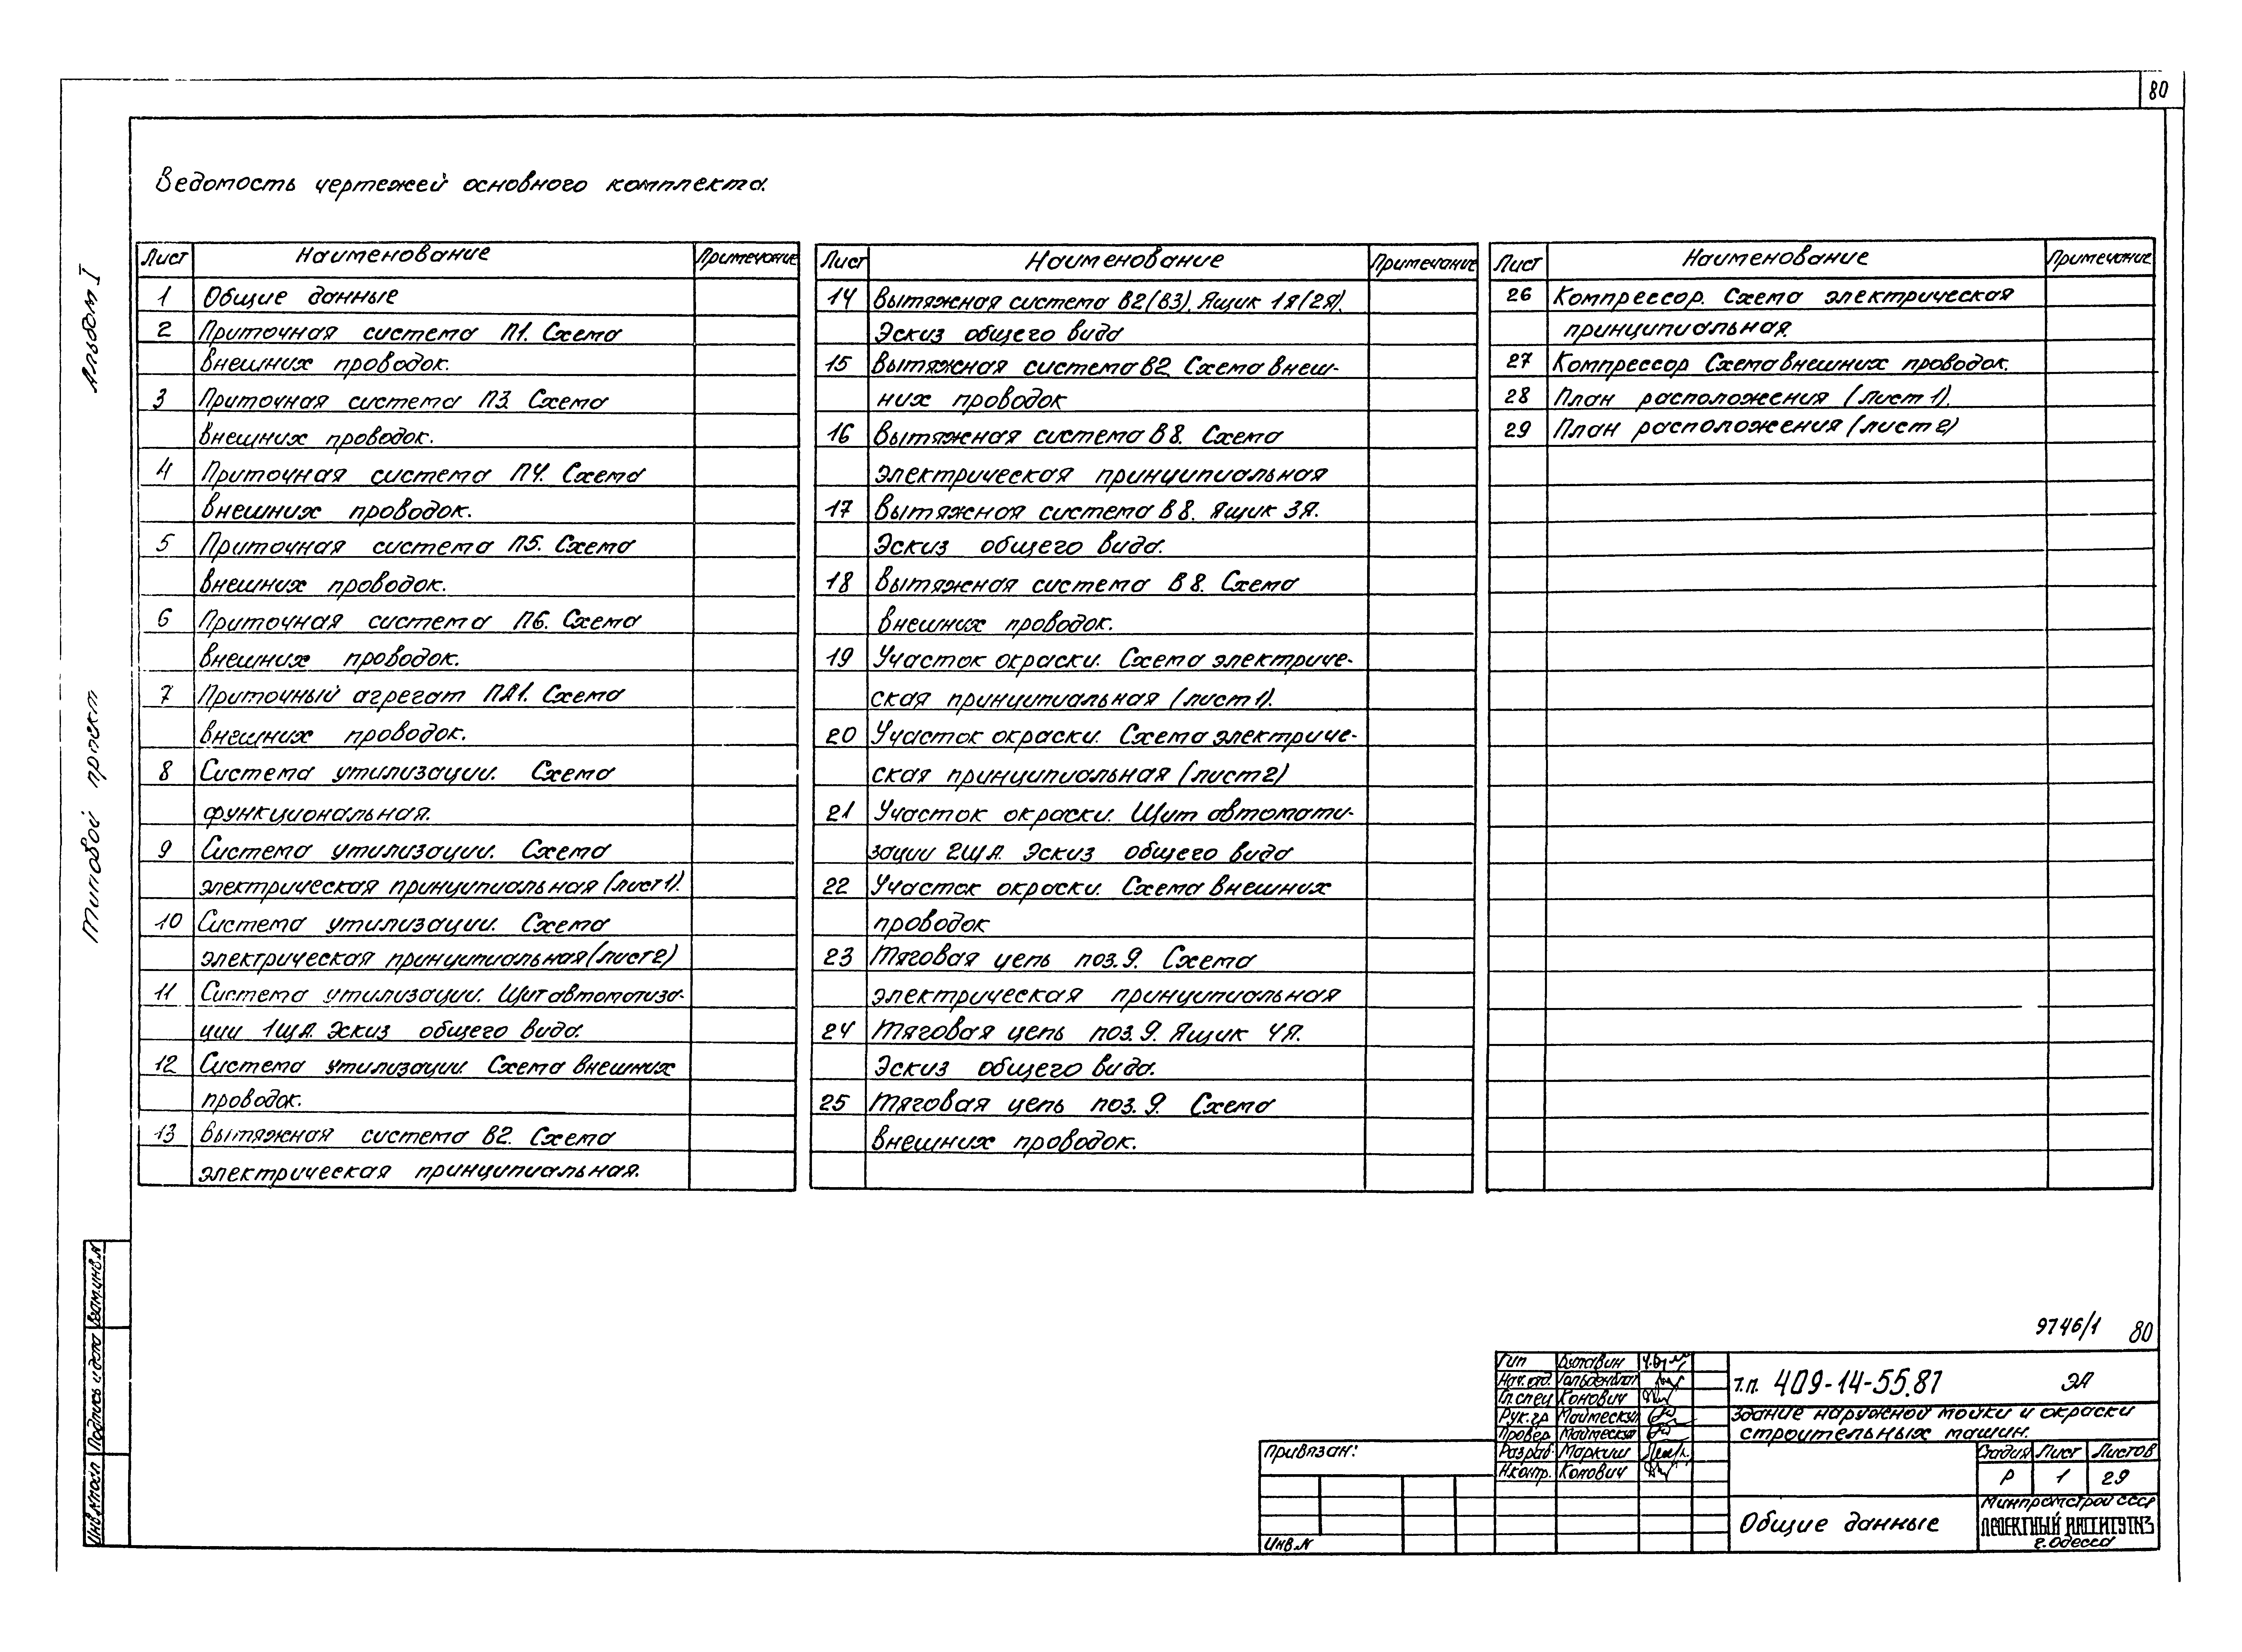 80
Ведомость чертежей основного комплекта.
Альбом I
Типовой проект
Лист Наименование Примечание
1 Общие данные
2 Приточная система П1. Схема
внешних проводок.
3 Приточная система П3. Схема
внешних проводок.
4 Приточная система П4. Схема
внешних проводок.
5 Приточная система П5. Схема
внешних проводок.
6 Приточная система П6. Схема
внешних проводок.
7 Приточный агрегат ПА1. Схема
внешних проводок.
8 Система утилизации. Схема
функциональная.
9 Система утилизации. Схема
электрическая принципиальная (лист 1).
10 Система утилизации. Схема
электрическая принципиальная (лист 2)
11 Система утилизации. Щит автоматиза-
ции 1ЩА. Эскиз общего вида.
12 Система утилизации Схема внешних
проводок.
13 Вытяжная система В2. Схема
электрическая принципиальная.
Лист Наименование Примечание
14 Вытяжная система В2(В3). Ящик 1Я(2Я).
Эскиз общего вида
15 Вытяжная система В2 Схема внеш-
них проводок
16 Вытяжная система В8. Схема
электрическая принципиальная
17 Вытяжная система В8. Ящик 3Я.
Эскиз общего вида.
18 Вытяжная система В8. Схема
внешних проводок.
19 Участок окраски. Схема электриче-
ская принципиальная (лист 1).
20 Участок окраски. Схема электриче-
ская принципиальная (лист 2)
21 Участок окраски. Щит автомати-
зации 2ЩА. Эскиз общего вида
22 Участок окраски. Схема внешних
проводок
23 Тяговая цепь поз. 9. Схема
электрическая принципиальная
24 Тяговая цепь поз. 9. Ящик 4Я.
Эскиз общего вида.
25 Тяговая цепь поз. 9. Схема
внешних проводок.
Лист Наименование Примечание
26 Компрессор. Схема электрическая
принципиальная.
27 Компрессор Схема внешних проводок.
28 План расположения (лист 1).
29 План расположения (лист 2)
Инв.№подл Подпись и дата Взам.инв.№
9746/1 80
Гип Бутавин
Нач.отд.
Гл.спец Конович
Рук.гр
Провер
Разраб. Маркиш
Н.контр. Конович
Привязан:
Инв.№
т.п. 409-14-55.87 ЭА
Здание наружной мойки и окраски
строительных машин.
Стадия Лист Листов
Р 1 29
Общие данные
Минпромстрой СССР
ПРОЕКТНЫЙ ИНСТИТУТ №3
г. Одесса